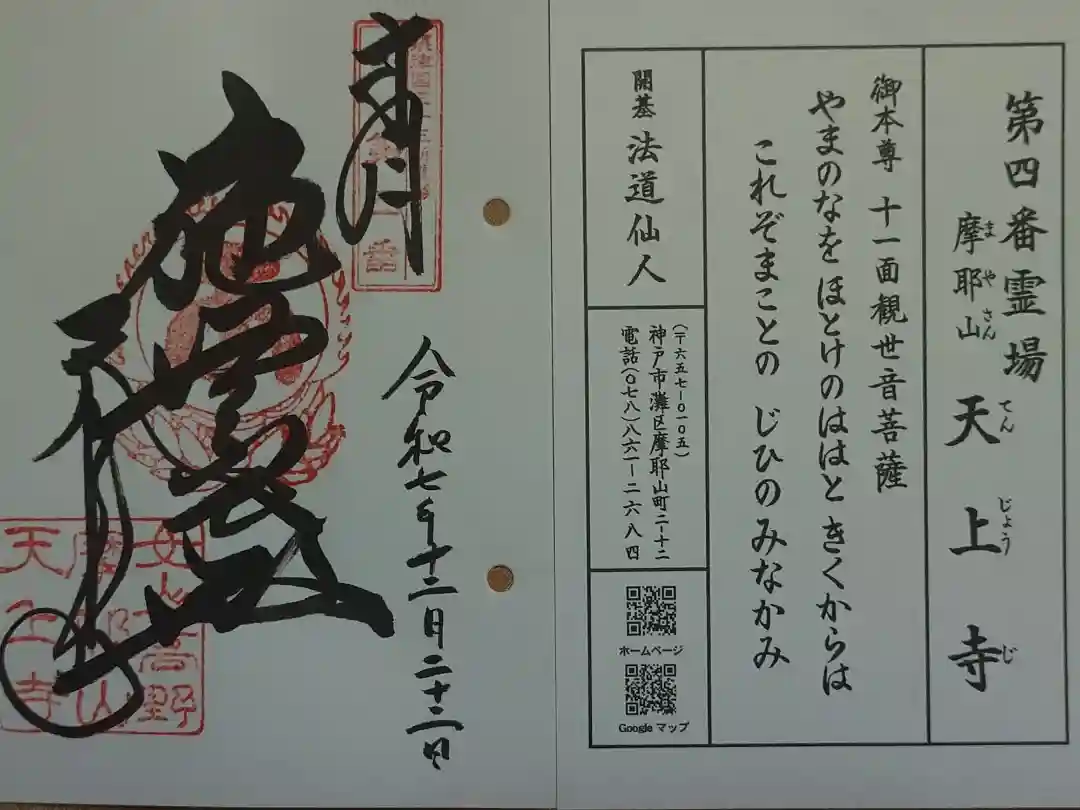 第四番霊場
摩耶山 天上寺
まやさん てんじょうじ
御本尊 十一面観世音菩薩
やまのなを ほとけのははと きくからは
これぞまことの じひのみなかみ
開基 法道仙人
(〒六五七-〇一〇五)
神戸市灘区摩耶山町二-十二
電話(〇七八)八六一-二六八四
ホームページ
Google マップ
奉拝
令和七年十二月二十二日
天上寺